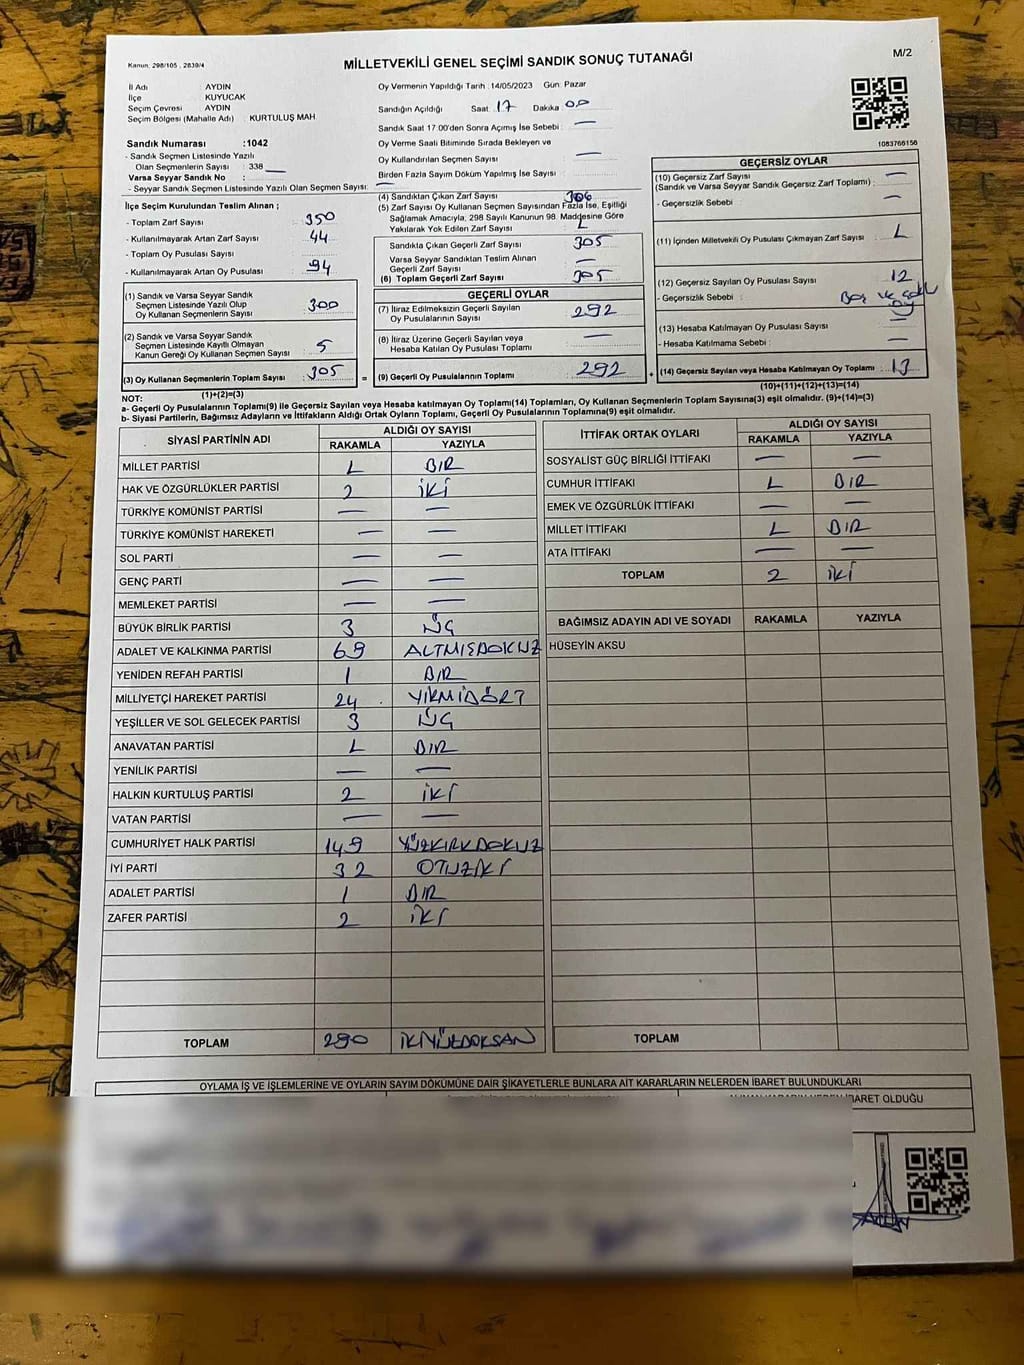 Kanun: 298/105 , 2839/4
MİLLETVEKİLİ GENEL SEÇİMİ SANDIK SONUÇ TUTANAĞI
M/2
İl Adı AYDIN
İlçe KUYUCAK
Seçim Çevresi AYDIN
Seçim Bölgesi (Mahalle Adı) : KURTULUŞ MAH.
Sandık Numarası :1042
- Sandık Seçmen Listesinde Yazılı
Olan Seçmenlerin Sayısı : 338
Varsa Seyyar Sandık No :
- Seyyar Sandık Seçmen Listesinde Yazılı Olan Seçmen Sayısı: —
Oy Vermenin Yapıldığı Tarih :14/05/2023 Gün: Pazar
Sandığın Açıldığı Saat : 17 Dakika : 00
Sandık Saat 17:00'den Sonra Açımış İse Sebebi : —
Oy Verme Saati Bitiminde Sırada Bekleyen ve
Oy Kullandırılan Seçmen Sayısı : —
Birden Fazla Sayım Döküm Yapılmış İse Sayısı : —
1083766156
İlçe Seçim Kurulundan Teslim Alınan ;
- Toplam Zarf Sayısı : 350
- Kullanılmayarak Artan Zarf Sayısı : 44
- Toplam Oy Pusulası Sayısı :
- Kullanılmayarak Artan Oy Pusulası : 94
(1) Sandık ve Varsa Seyyar Sandık
Seçmen Listesinde Yazılı Olup
Oy Kullanan Seçmenlerin Sayısı : 300
(2) Sandık ve Varsa Seyyar Sandık
Seçmen Listesinde Kayıtlı Olmayan
Kanun Gereği Oy Kullanan Seçmen Sayısı : 5
(3) Oy Kullanan Seçmenlerin Toplam Sayısı : 305
(1)+(2)=(3)
(4) Sandıktan Çıkan Zarf Sayısı : 306
(5) Zarf Sayısı Oy Kullanan Seçmen Sayısından Fazla İse, Eşitliği
Sağlamak Amacıyla, 298 Sayılı Kanunun 98. Maddesine Göre
Yakılarak Yok Edilen Zarf Sayısı : 1
Sandıkta Çıkan Geçerli Zarf Sayısı : 305
Varsa Seyyar Sandıktan Teslim Alınan
Geçerli Zarf Sayısı : —
(6) Toplam Geçerli Zarf Sayısı : 305
GEÇERLİ OYLAR
(7) İtiraz Edilmeksizin Geçerli Sayılan
Oy Pusulalarının Sayısı : 292
(8) İtiraz Üzerine Geçerli Sayılan veya
Hesaba Katılan Oy Pusulası Toplamı : —
= (9) Geçerli Oy Pusulalarının Toplamı : 292 +
GEÇERSİZ OYLAR
(10) Geçersiz Zarf Sayısı : —
(Sandık ve Varsa Seyyar Sandık Geçersiz Zarf Toplamı) :
- Geçersizlik Sebebi : —
(11) İçinden Milletvekili Oy Pusulası Çıkmayan Zarf Sayısı : 1
(12) Geçersiz Sayılan Oy Pusulası Sayısı : 12
- Geçersizlik Sebebi : Boş ve çoklu oy
(13) Hesaba Katılmayan Oy Pusulası Sayısı : —
- Hesaba Katılmama Sebebi : —
(14) Geçersiz Sayılan veya Hesaba Katılmayan Oy Toplamı : 13
(10)+(11)+(12)+(13)=(14)
NOT:
a- Geçerli Oy Pusulalarının Toplamı(9) ile Geçersiz Sayılan veya Hesaba katılmayan Oy Toplamı(14) Toplamları, Oy Kullanan Seçmenlerin Toplam Sayısına(3) eşit olmalıdır. (9)+(14)=(3)
b- Siyasi Partilerin, Bağımsız Adayların ve İttifakların Aldığı Ortak Oyların Toplamı, Geçerli Oy Pusulalarının Toplamına(9) eşit olmalıdır.
SİYASİ PARTİNİN ADI ALDIĞI OY SAYISI
RAKAMLA YAZIYLA
MİLLET PARTİSİ 1 BİR
HAK VE ÖZGÜRLÜKLER PARTİSİ 2 İKİ
TÜRKİYE KOMÜNİST PARTİSİ — —
TÜRKİYE KOMÜNİST HAREKETİ — —
SOL PARTİ — —
GENÇ PARTİ — —
MEMLEKET PARTİSİ — —
BÜYÜK BİRLİK PARTİSİ 3 ÜÇ
ADALET VE KALKINMA PARTİSİ 69 ALTMIŞDOKUZ
YENİDEN REFAH PARTİSİ 1 BİR
MİLLİYETÇİ HAREKET PARTİSİ 24 YİRMİDÖRT
YEŞİLLER VE SOL GELECEK PARTİSİ 3 ÜÇ
ANAVATAN PARTİSİ 1 BİR
YENİLİK PARTİSİ — —
HALKIN KURTULUŞ PARTİSİ 2 İKİ
VATAN PARTİSİ — —
CUMHURİYET HALK PARTİSİ 149 YÜZKIRKDOKUZ
İYİ PARTİ 32 OTUZİKİ
ADALET PARTİSİ 1 BİR
ZAFER PARTİSİ 2 İKİ
TOPLAM 290 İKİYÜZDOKSAN
İTTİFAK ORTAK OYLARI ALDIĞI OY SAYISI
RAKAMLA YAZIYLA
SOSYALİST GÜÇ BİRLİĞİ İTTİFAKI — —
CUMHUR İTTİFAKI 1 BİR
EMEK VE ÖZGÜRLÜK İTTİFAKI — —
MİLLET İTTİFAKI 1 BİR
ATA İTTİFAKI — —
TOPLAM 2 İKİ
BAĞIMSIZ ADAYIN ADI VE SOYADI RAKAMLA YAZIYLA
HÜSEYİN AKSU
TOPLAM
OYLAMA İŞ VE İŞLEMLERİNE VE OYLARIN SAYIM DÖKÜMÜNE DAİR ŞİKAYETLERLE BUNLARA AİT KARARLARIN NELERDEN İBARET BULUNDUKLARI
İBARET OLDUĞU